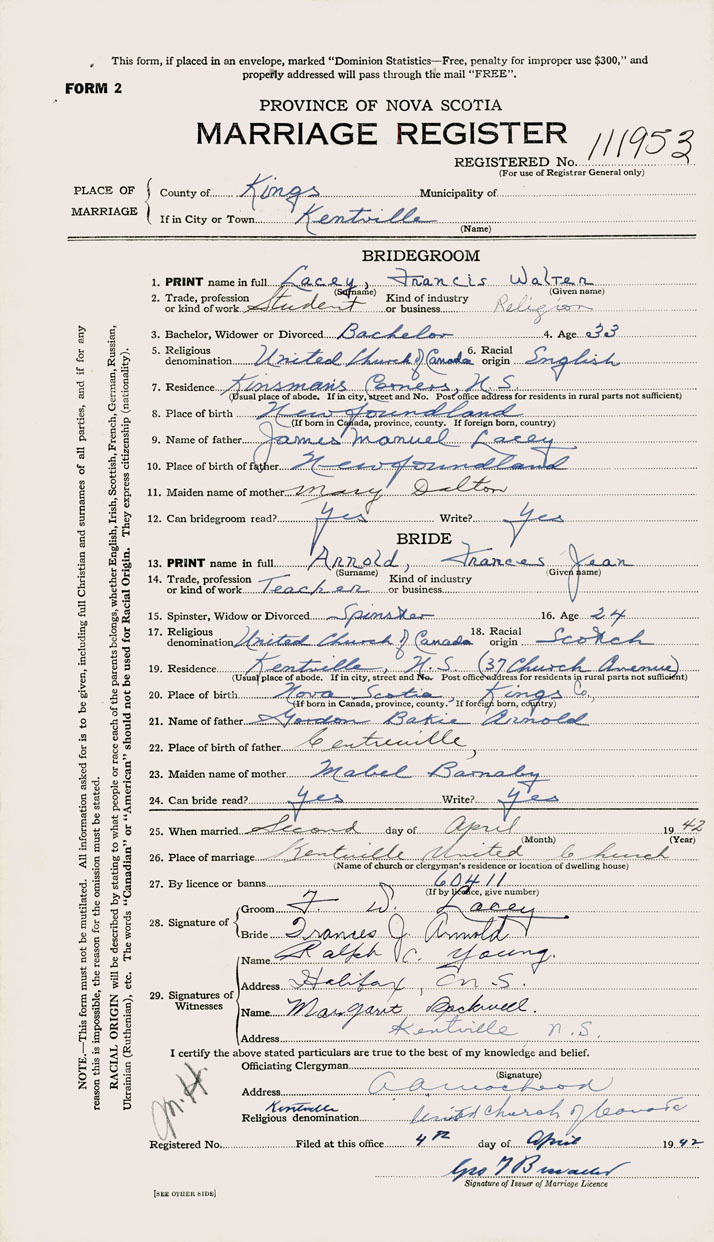 This form, if placed in an envelope, marked "Dominion Statistics—Free, penalty for improper use $300," and
properly addressed will pass through the mail "FREE".
FORM 2
PROVINCE OF NOVA SCOTIA
MARRIAGE REGISTER
REGISTERED No. 111953
(For use of Registrar General only)
PLACE OF MARRIAGE
County of Kings Municipality of
If in City or Town Kentville
(Name)
BRIDEGROOM
1. PRINT name in full Lacey, Francis Walter
(Surname) (Given name)
2. Trade, profession or kind of work Student Kind of industry or business Religion
3. Bachelor, Widower or Divorced Bachelor 4. Age 33
5. Religious denomination United Church of Canada 6. Racial origin English
7. Residence Kinsmans Corners, N.S.
(Usual place of abode. If in city, street and No. Post office address for residents in rural parts not sufficient)
8. Place of birth Newfoundland
(If born in Canada, province, county. If foreign born, country)
9. Name of father James Manuel Lacey
10. Place of birth of father Newfoundland
11. Maiden name of mother Mary Dalton
12. Can bridegroom read? Yes Write? Yes
BRIDE
13. PRINT name in full Arnold, Frances Jean
(Surname) (Given name)
14. Trade, profession or kind of work Teacher Kind of industry or business
15. Spinster, Widow or Divorced Spinster 16. Age 24
17. Religious denomination United Church of Canada 18. Racial origin Scotch
19. Residence Kentville, N.S. (37 Church Avenue)
(Usual place of abode. If in city, street and No. Post office address for residents in rural parts not sufficient)
20. Place of birth Nova Scotia, Kings Co,
(If born in Canada, province, county. If foreign born, country)
21. Name of father Gordon Bakie Arnold
22. Place of birth of father Centreville,
23. Maiden name of mother Mabel Barnaby
24. Can bride read? Yes Write? Yes
25. When married Second day of April 1942
(Month) (Year)
26. Place of marriage Kentville United Church
(Name of church or clergyman's residence or location of dwelling house)
27. By licence or banns 60411
(If by licence, give number)
28. Signature of
Groom F. W. Lacey
Bride Frances J. Arnold
29. Signatures of Witnesses
Name Ralph C. Young.
Address Halifax, N.S.
Name Margaret Rockwell.
Address Kentville N.S.
I certify the above stated particulars are true to the best of my knowledge and belief.
Officiating Clergyman
(Signature)
Address
Kentville
Religious denomination United Church of Canada
Registered No. Filed at this office 4th day of April 1942
Geo
Signature of Issuer of Marriage Licence
[SEE OTHER SIDE]
NOTE.—This form must not be mutilated. All information asked for is to be given, including full Christian and surnames of all parties, and if for any
reason this is impossible, the reason for the omission must be stated.
RACIAL ORIGIN will be described by stating to what people or race each of the parents belongs, whether English, Irish, Scottish, French, German, Russian,
Ukrainian (Ruthenian), etc. The words "Canadian" or "American" should not be used for Racial Origin. They express citizenship (nationality).